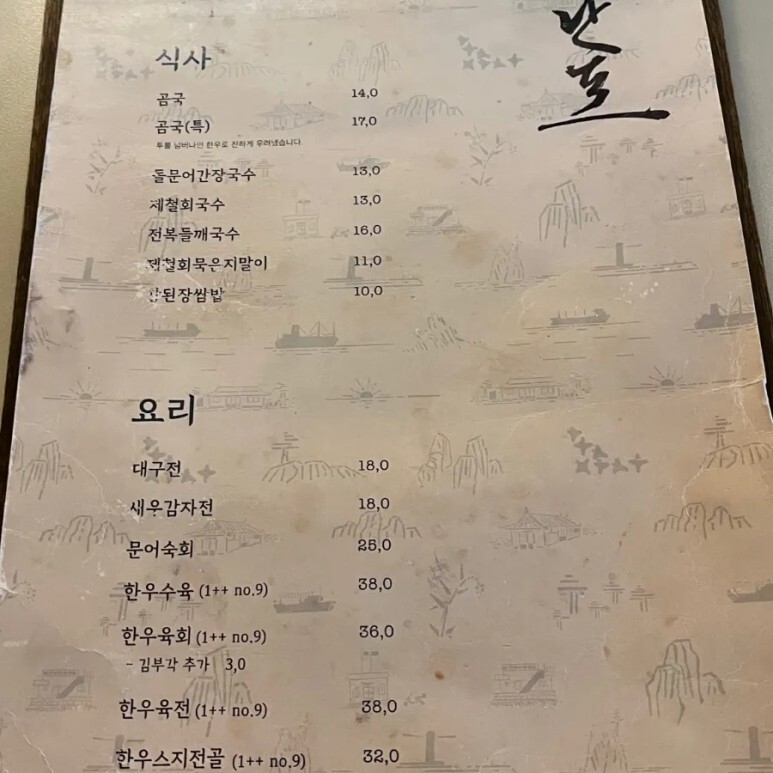 난포
식사
곰국 14,0
곰국(특) 17,0
투뿔 넘버나인 한우로 진하게 우려냈습니다.
돌문어간장국수 13,0
제철회국수 13,0
전복들깨국수 16,0
제철회묵은지말이 11,0
강된장쌈밥 10,0
요리
대구전 18,0
새우감자전 18,0
문어숙회 25,0
한우수육 (1++ no.9) 38,0
한우육회 (1++ no.9) 36,0
- 김부각 추가 3,0
한우육전 (1++ no.9) 38,0
한우스지전골 (1++ no.9) 32,0